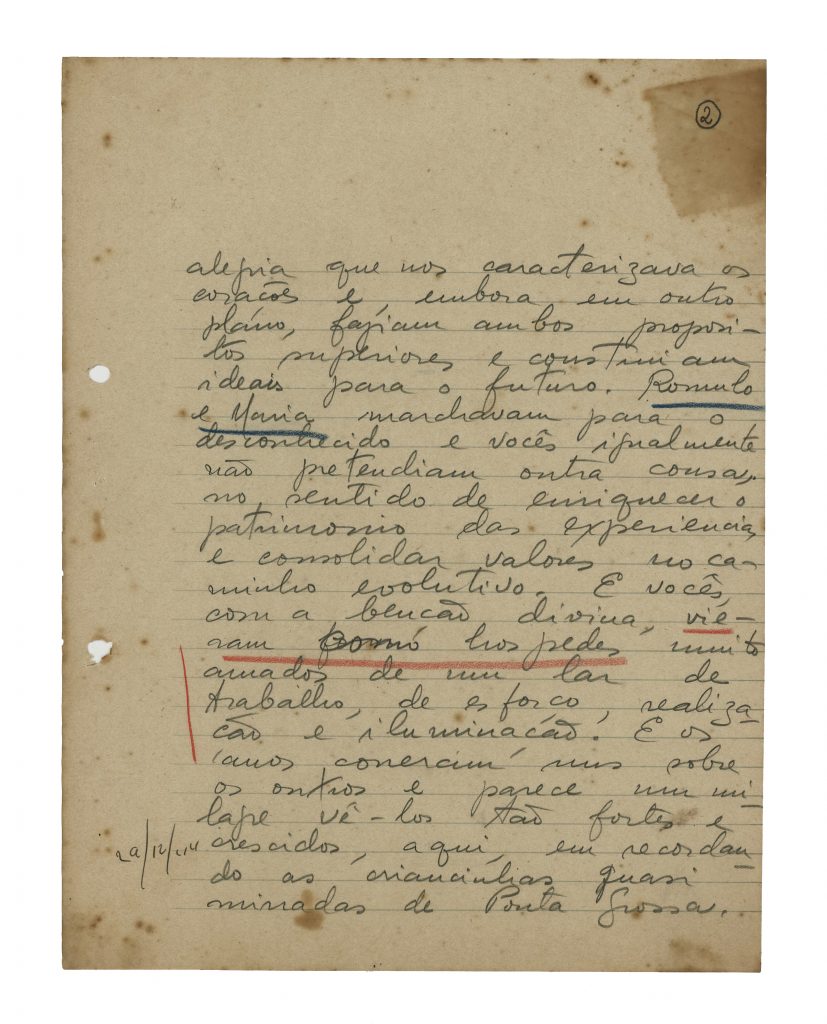 2
alegria que nos caracterizava os
corações e, embora em outro
pláno, faziam ambos proposi-
tos superiores e construiam
ideais para o futuro. Romulo
e Maria marchavam para o
desconhecido e vocês igualmente
não pretendiam outra cousa,
no sentido de enriquecer o
patrimonio das experiencias
e consolidar valores no ca-
minho evolutivo. E vocês,
com a bencão divina, vié-
ram como hospedes muito
amados de um lar de
trabalho, de esforco, realiza-
cão e iluminacão. E os
anos correram uns sobre
os outros e parece um mi-
lagre vê-los tão fortes e
crescidos, aqui, em recordan-
do as criancinhas quasi
mirradas de Ponta Grossa.